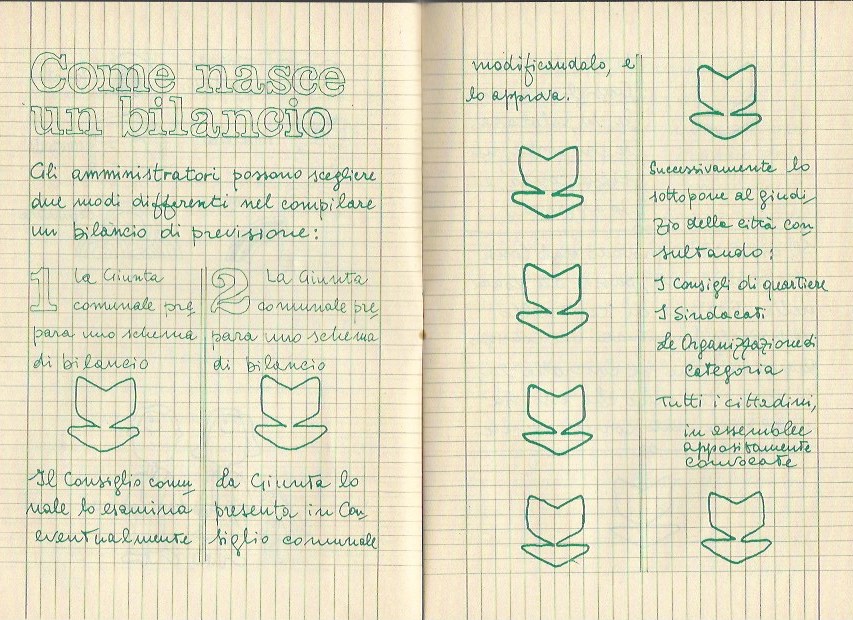 Come nasce
un bilancio
Gli amministratori possono scegliere
due modi differenti nel compilare
un bilancio di previsione:
1 La Giunta
comunale pre
para uno schema
di bilancio
Il Consiglio comu
nale lo esamina
eventualmente
2 La Giunta
comunale pre
para uno schema
di bilancio
La Giunta lo
presenta in Con
siglio comunale
modificandolo, e
lo approva.
Successivamente lo
sottopone al giudi
zio della città con
sultando:
I Consigli di quartiere
I Sindacati
Le Organizzazioni di
categoria
Tutti i cittadini,
in assemblee
appositamente
convocate